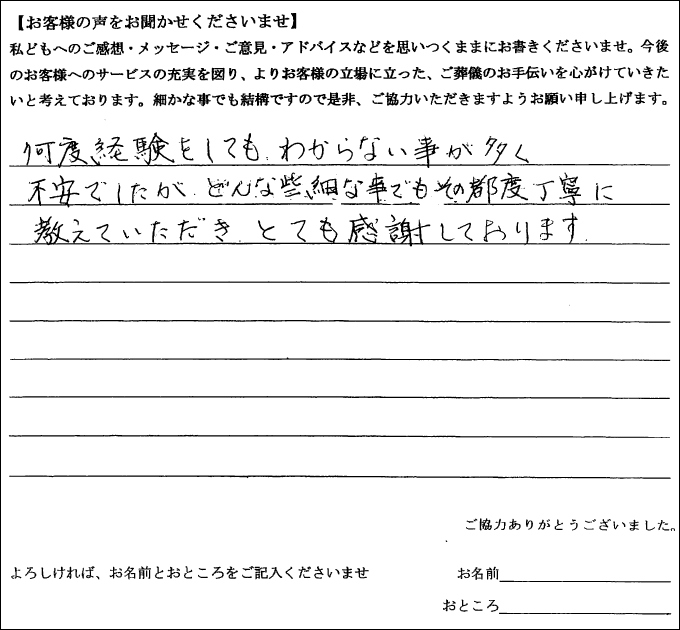 【お客様の声をお聞かせくださいませ】
私どもへのご感想・メッセージ・ご意見・アドバイスなどを思いつくままにお書きくださいませ。今後
のお客様へのサービスの充実を図り、よりお客様の立場に立った、ご葬儀のお手伝いを心がけていきた
いと考えております。細かな事でも結構ですので是非、ご協力いただきますようお願い申し上げます。
何度経験をしても、わからない事が多く
不安でしたが、どんな些細な事でもその都度丁寧に
教えていただき、とても感謝しております。
ご協力ありがとうございました。
よろしければ、お名前とおところをご記入くださいませ
お名前
おところ